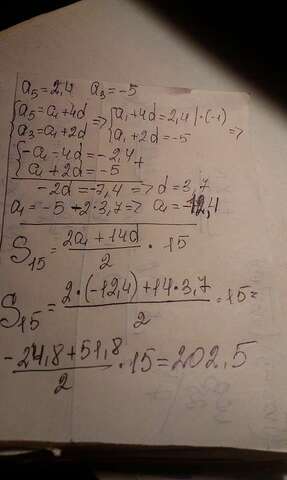 a₅=2,4 a₃=-5
{a₅=a₁+4d => {a₁+4d=2,4 |·(-1)
{a₃=a₁+2d {a₁+2d=-5 =>
{-a₁-4d=-2,4 +
{a₁+2d=-5
-2d=-7,4 => d=3,7
a₁=-5-2·3,7=> a₁=-12,4
S₁₅=(2a₁+14d)/2 · 15
S₁₅=(2·(-12,4)+14·3,7)/2 ·15=
(-24,8+51,8)/2 ·15=202,5